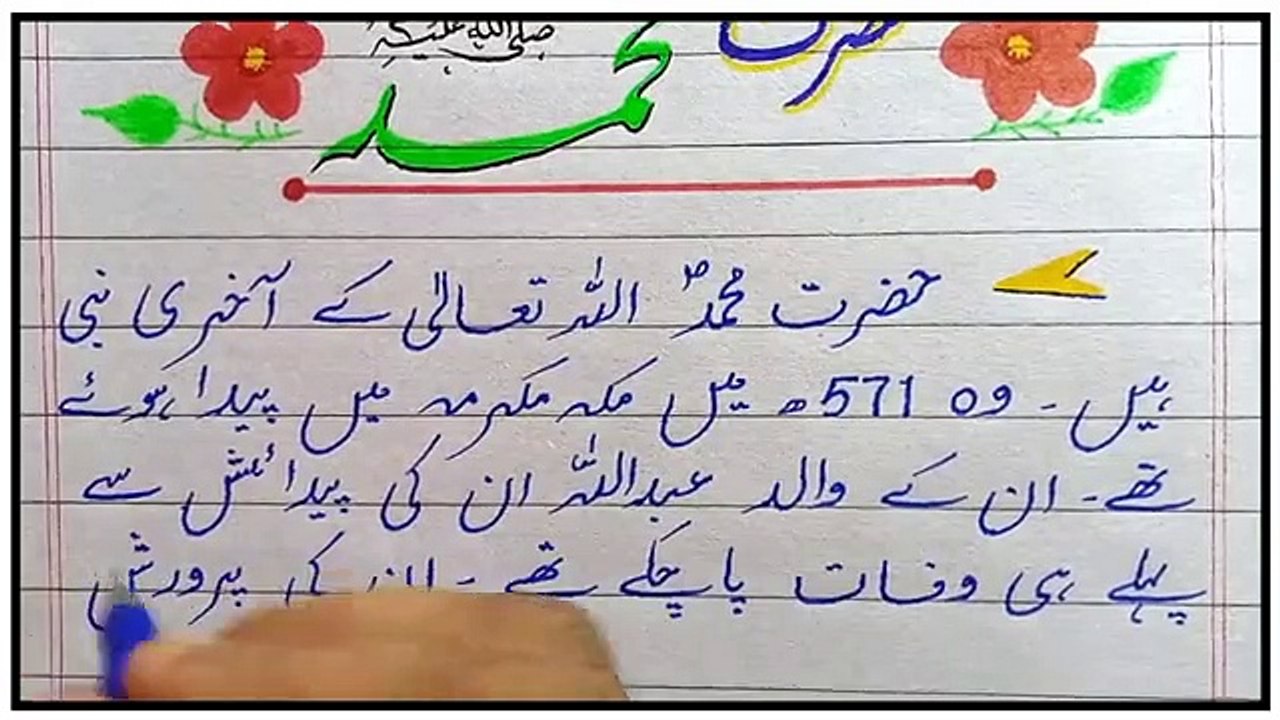 حضرت محمد صلی اللہ علیہ
حضرت محمدؐ اللہ تعالیٰ کے آخری نبی
ہیں۔ وہ 571ھ میں مکہ مکرمہ میں پیدا ہوئے
تھے۔ ان کے والد عبداللہ ان کی پیدائش سے
پہلے ہی وفات پا چکے تھے۔ ان کی پرورش